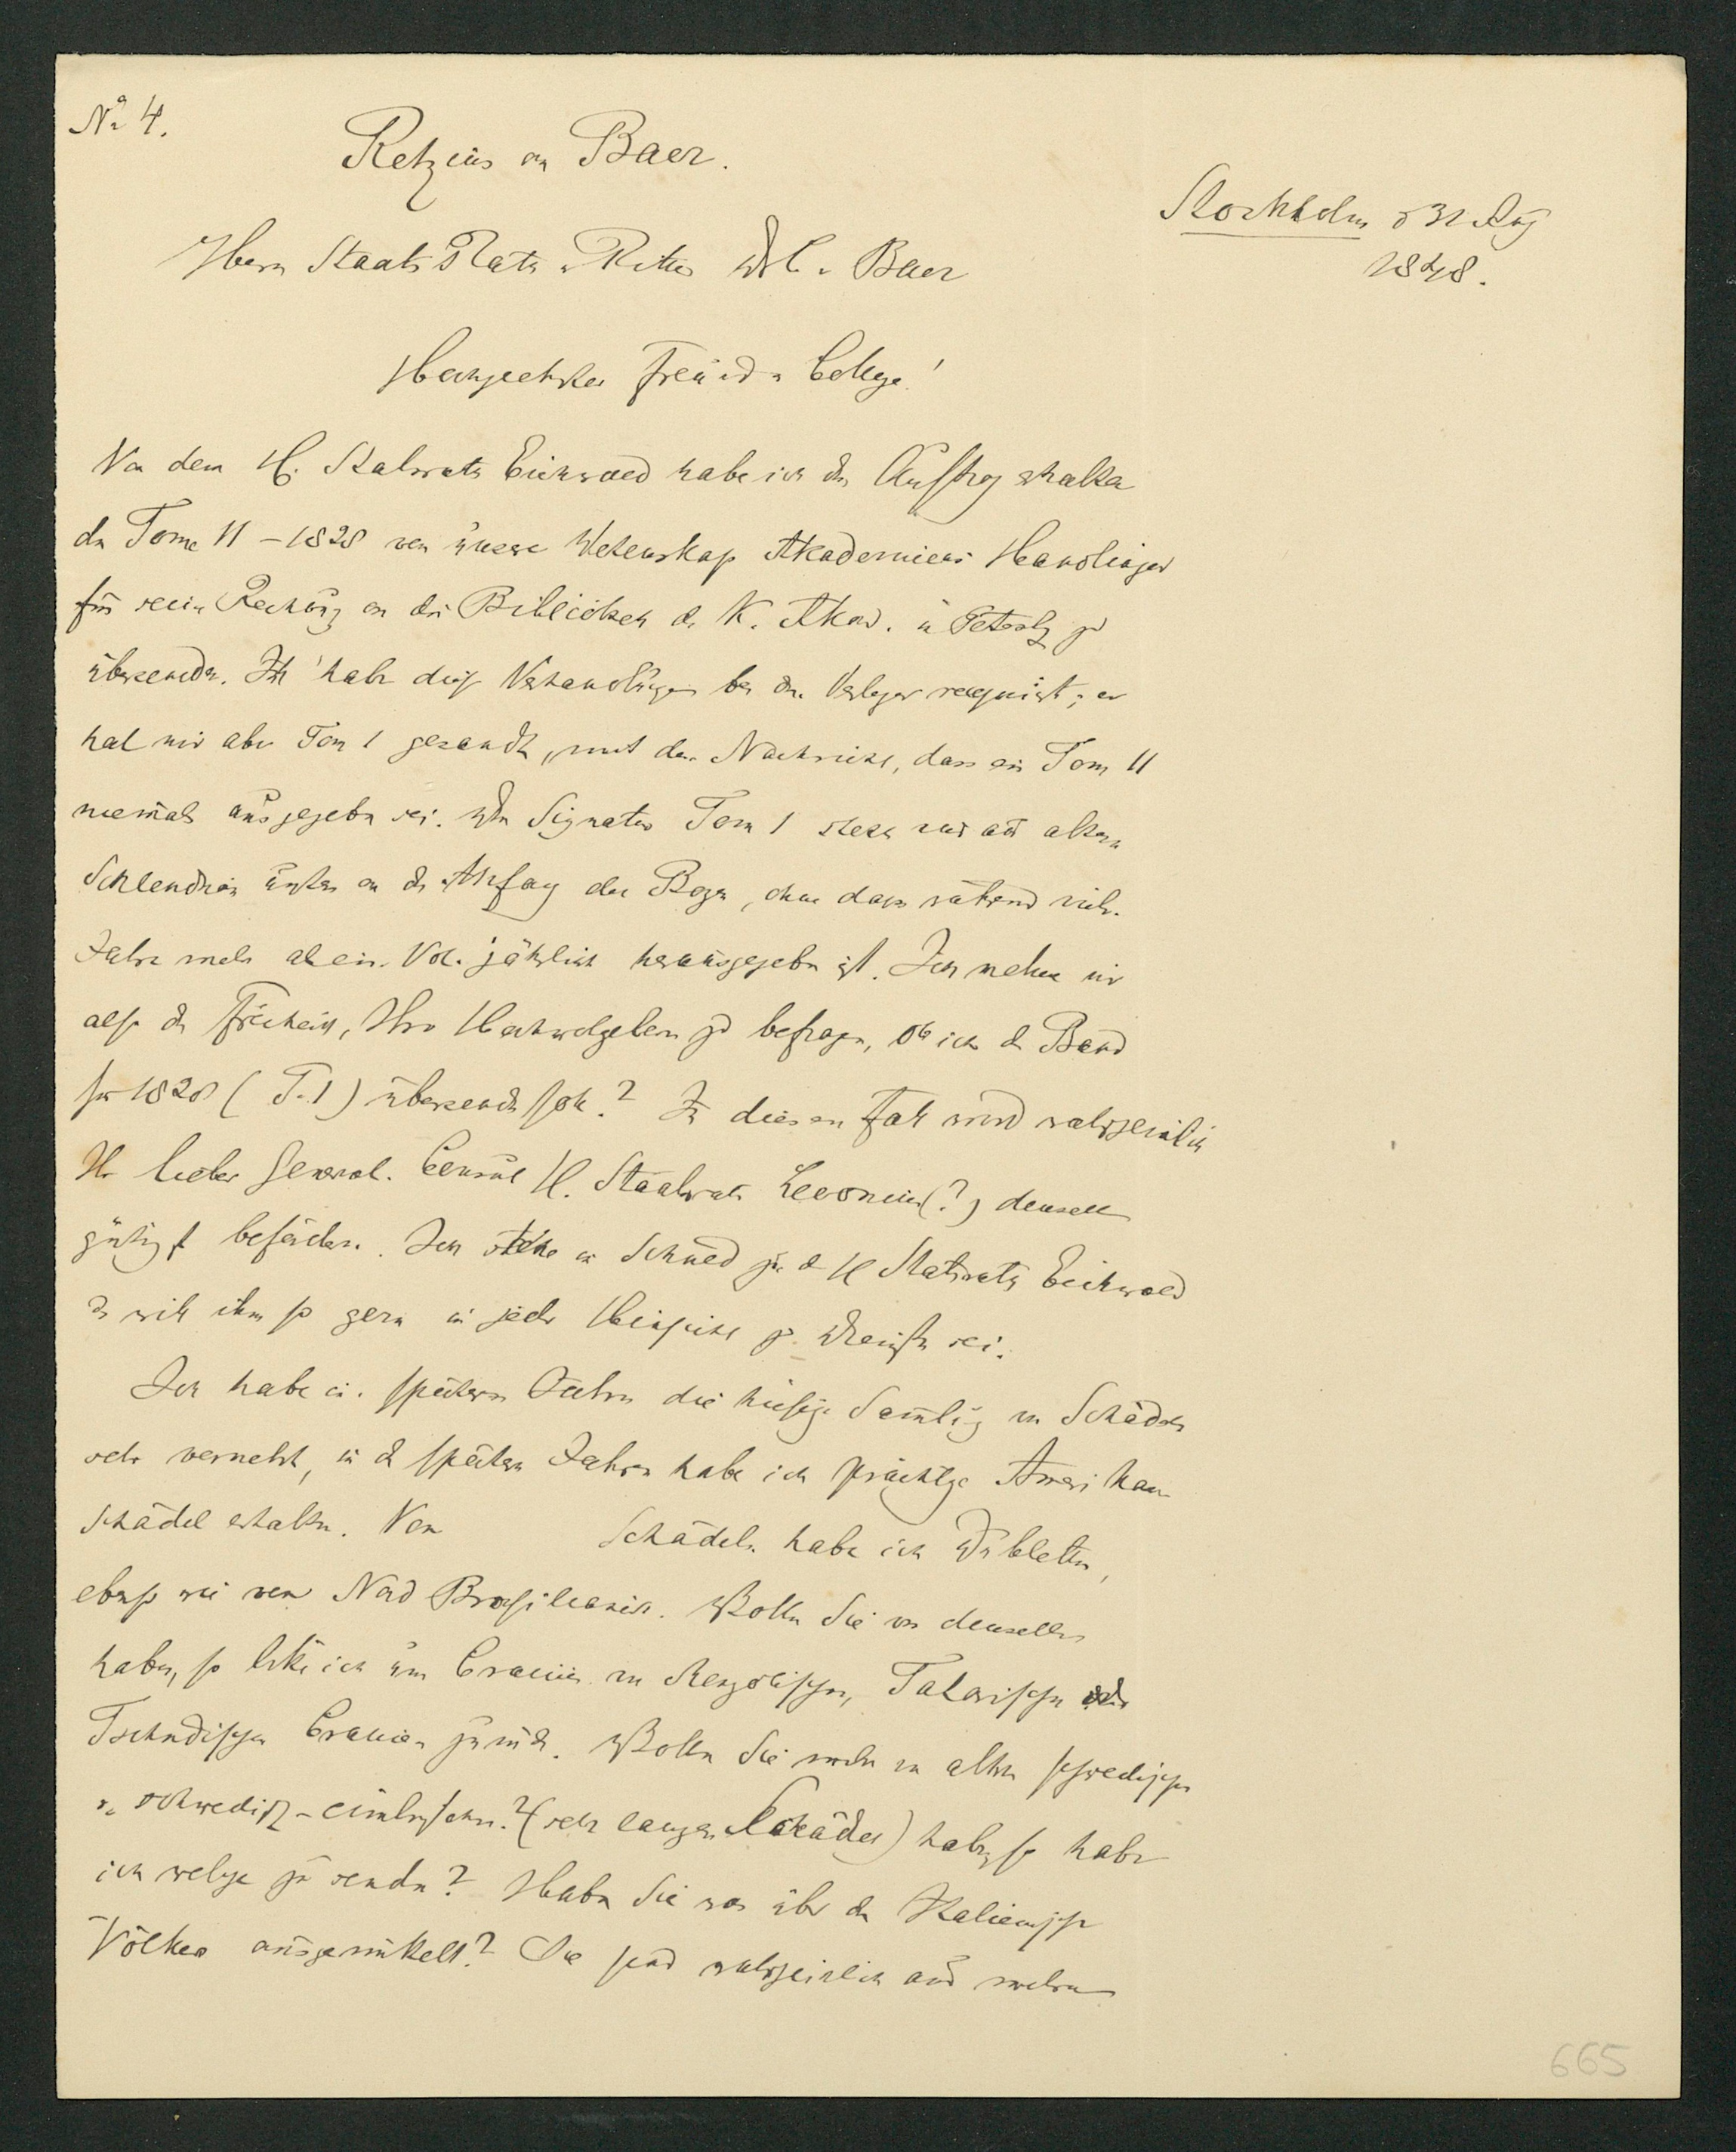 No 4.
Retzius an Baer.
Stockholm d 31 Aug
1848.
Herrn Staats Rath u Ritter Dr C. v Baer
Hochgeehrter Freund u College!
Von dem H. Statsrath Eichwald habe ich den Auftrag erhalten
den Tome II – 1828 von unsere Wetenskap Akademiens Handlingar
für seine Rechnung an die Bibliothek d. K. Akad. in Petersbg zu
übersenden. Ich habe diese Verhandlungen bei den Verleger requirirt; er
hat mir aber Tom I gesandt, mit der Nachricht, dass ein Tom II
niemals ausgegeben sei. Die Signatur Tom I steht nur aus altem
Schlendrian unten an d. Anfang der Bogen, ohne dass während vieler
Jahre mehr als ein Vol. jährlich herausgegeben ist. Ich nehme mir
also die Freiheit, Ihro Hochwolgeboren zu befragen, ob ich d Band
für 1828 (T. I) übersenden soll? In diesem Fall wird wahrscheinlich
Ihr lieber General. Consul H. Staatsrath (?) denselben
gütigst befördern. Ich stehe in Schuld zu d H Statsrath Eichwald
u will ihm so gern in jeder Hinsicht zu Dienste sein.
Ich habe in spätern Jahren die hiesige Samlung von Schädeln
sehr vermehrt, in d spätern Jahren habe ich prächtige Amerikan
Schädel erhalten. Von Schädeln habe ich Dubletten,
ebenso wie von Nord Brasilianern. Wollen Sie von denselben
haben, so bitte ich um Cranien von Mongolischen, Tatarischen oder
Tschudischen Cranien zurück. Wollen Sie mehr von alten schwedischen
u. schwedisch-cimbrischen? (sehr langen Schädel) haben, so habe
ich welche zu senden? Haben Sie was über die Italienische
Völker ausgemittelt? Sie sind wahrscheinlich aus mehren
665